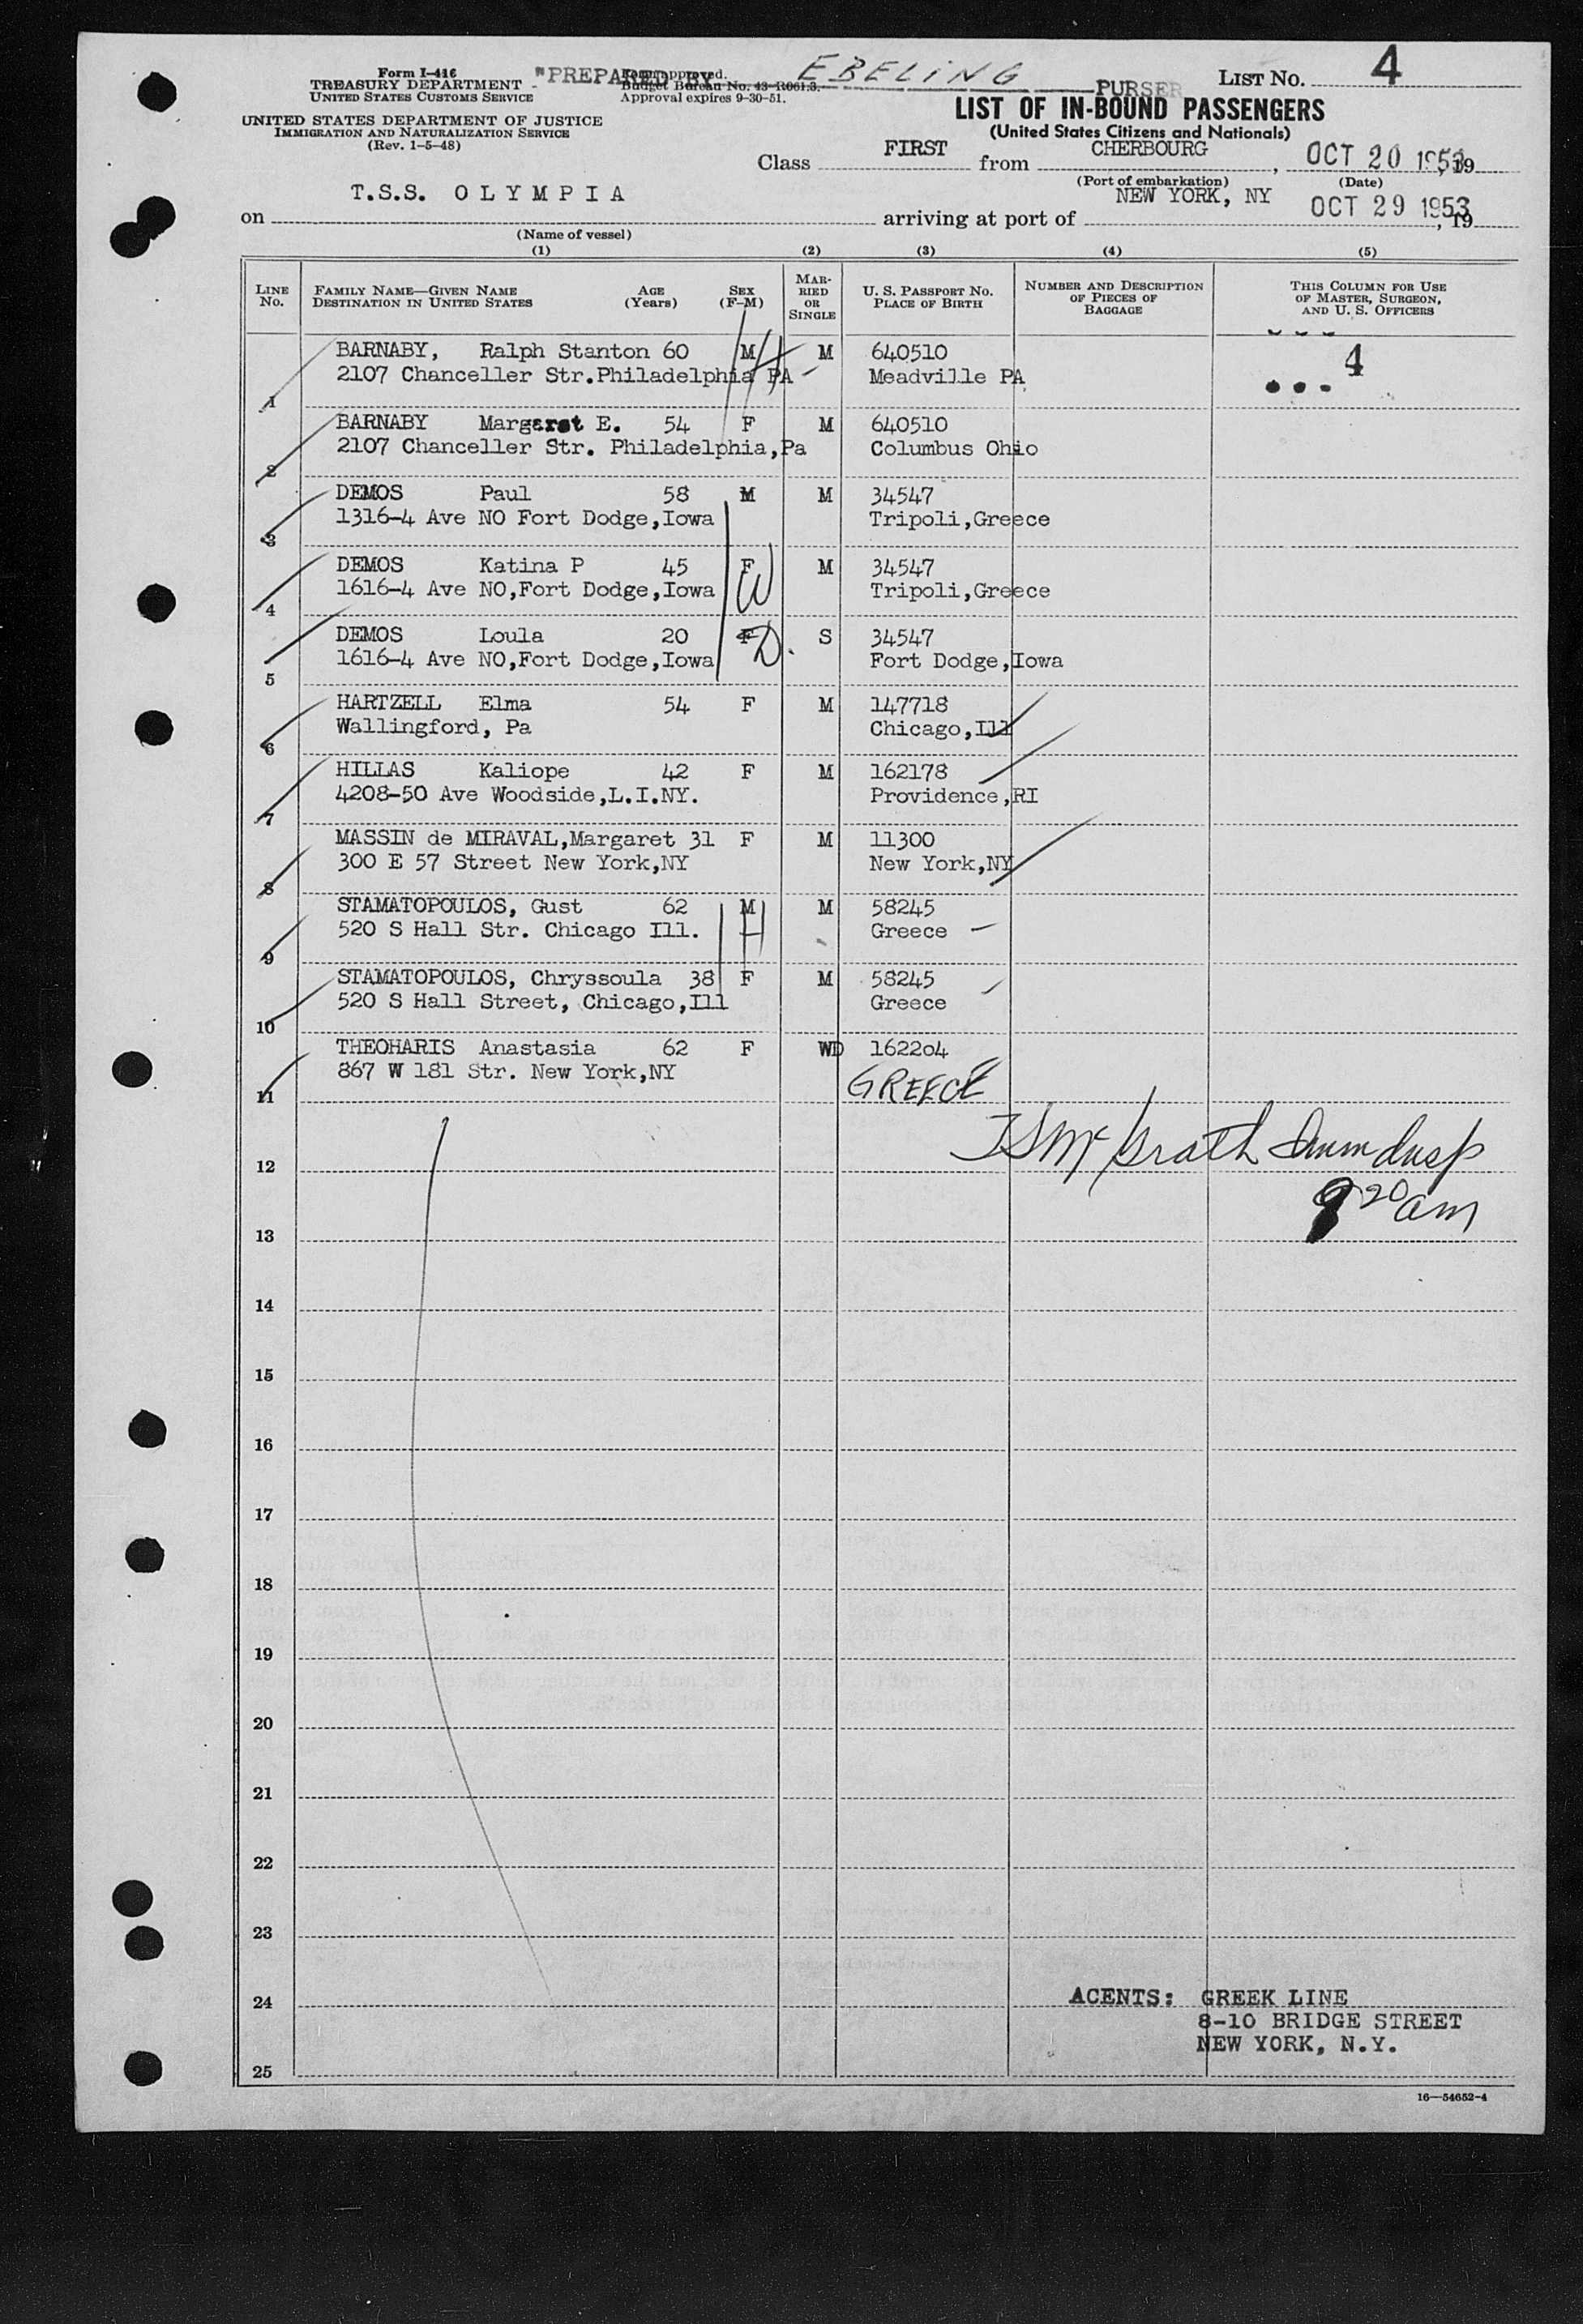 Form I-416
TREASURY DEPARTMENT
UNITED STATES CUSTOMS SERVICE
UNITED STATES DEPARTMENT OF JUSTICE
IMMIGRATION AND NATURALIZATION SERVICE
(Rev. 1-5-48)
"PREPARED BY EBELING PURSER
Form approved.
Budget Bureau No. 43-R061.3.
Approval expires 9-30-51.
LIST NO. 4
LIST OF IN-BOUND PASSENGERS
(United States Citizens and Nationals)
Class FIRST from CHERBOURG, OCT 20 1953, 19
(Port of embarkation) (Date)
on T.S.S. OLYMPIA arriving at port of NEW YORK, NY OCT 29 1953, 19
(Name of vessel)
(1) (2) (3) (4) (5)
LINE NO. FAMILY NAME—GIVEN NAME DESTINATION IN UNITED STATES AGE (Years) SEX (F-M) MARRIED OR SINGLE U. S. PASSPORT NO. PLACE OF BIRTH NUMBER AND DESCRIPTION OF PIECES OF BAGGAGE THIS COLUMN FOR USE OF MASTER, SURGEON, AND U. S. OFFICERS
BARNABY, Ralph Stanton 60 M H M 640510 4
1 2107 Chanceller Str.Philadelphia PA Meadville PA
BARNABY Margaret E. 54 F M 640510
2 2107 Chanceller Str. Philadelphia,Pa Columbus Ohio
DEMOS Paul 58 M M 34547
3 1316-4 Ave NO Fort Dodge,Iowa Tripoli,Greece
DEMOS Katina P 45 F W M 34547
4 1616-4 Ave NO,Fort Dodge,Iowa Tripoli,Greece
DEMOS Loula 20 F D. S 34547
5 1616-4 Ave NO,Fort Dodge,Iowa Fort Dodge,Iowa
HARTZELL Elma 54 F M 147718
6 Wallingford, Pa Chicago,Ill
HILLAS Kaliope 42 F M 162178
7 4208-50 Ave Woodside,L.I.NY. Providence,RI
MASSIN de MIRAVAL,Margaret 31 F M 11300
8 300 E 57 Street New York,NY New York,NY
STAMATOPOULOS, Gust 62 M H M 58245
9 520 S Hall Str. Chicago Ill. Greece
STAMATOPOULOS, Chryssoula 38 F M 58245
10 520 S Hall Street, Chicago,Ill Greece
THEOHARIS Anastasia 62 F WD 162204
11 867 W 181 Str. New York,NY GREECE
12 McGrath Imm Insp
13 9 20 am
14
15
16
17
18
19
20
21
22
23
24 AGENTS: GREEK LINE
8-10 BRIDGE STREET
NEW YORK, N.Y.
25
16—54652-4